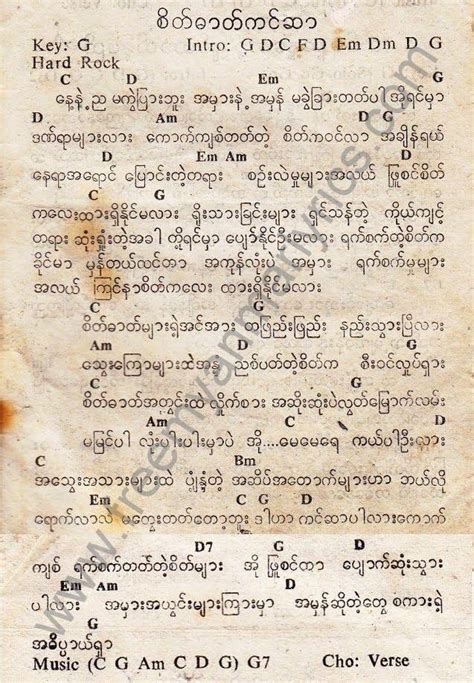 စိတ်ဓာတ်ကင်ဆာ
Key: G Intro: G D C F D Em Dm D G
Hard Rock
C D Em G
နေ့နဲ့ ည မကွဲပြားဘူး အမှားနဲ့ အမှန် မခွဲခြားတတ်ပါ အို့ရင်မှာ
D Am D
ဒဏ်ရာများလား ကောက်ကျစ်တတ်တဲ့ စိတ်ကဝင်လာ အချိန်ရယ်
Em Am D
နေရာအရောင် ပြောင်းကဲ့တရား စဉ်းလဲမှုများအလယ် ဖြူစင်စိတ်
C G
ကလေးထားရှိနိုင်မလား ရိုးသားခြင်းများ ရှင်သန်တဲ့ ကိုယ်ကျင့်
တရား ဆုံးရှုံးတဲ့အခါ တို့ရင်မှာ ပျော်နိုင်ဦးမလား ရက်စက်တဲ့စိတ်က
ခိုင်မာ မှန်တယ်ထင်တာ အကုန်လုံးပဲ အမှား ရက်စက်မှုများ
အလယ် ကြင်နာစိတ်ကလေး ထားရှိနိုင်မလား
G C
စိတ်ဓာတ်များရဲ့အင်အား တဖြည်းဖြည်း နည်းသွားပြီလား
Am D G
သွေးကြောများထဲအနှ ညစ်ပတ်တဲ့စိတ်က စီးဝင်လှုပ်ရှား
C
စိတ်ဓာတ်အတွင်းထဲ လိုက်စား အဆိုးဆုံးပဲလွတ်မြောက်လမ်း
Am D
မမြင်ပါ လုံးပါးပါးမှာပဲ အို....မေမေရေ ကယ်ပါဦးလား
C Bm
အသွေးအသားများထဲ ပျံ့နှံ့တဲ့ အဆိပ်အတောက်များဟာ ဘယ်လို
Em Am D C G
ရောက်လာလဲ မတွေးတတ်တော့ဘူး ဒါဟာ ကင်ဆာပါလားကောက်
D7 G D
ကျစ် ရက်စက်တတ်တဲ့စိတ်များ အို ဖြူစင်တာ ပျောက်ဆုံးသွား
Em Am D
ပါလား အမှားအယွင်းများကြားမှာ အမှန်ဆိုတဲ့တွေ စကားရဲ့
G
အဓိပ္ပာယ်ရှာ
Music (C G Am C D G) G7 Cho: Verse
www.freemyanmarlyrics.com